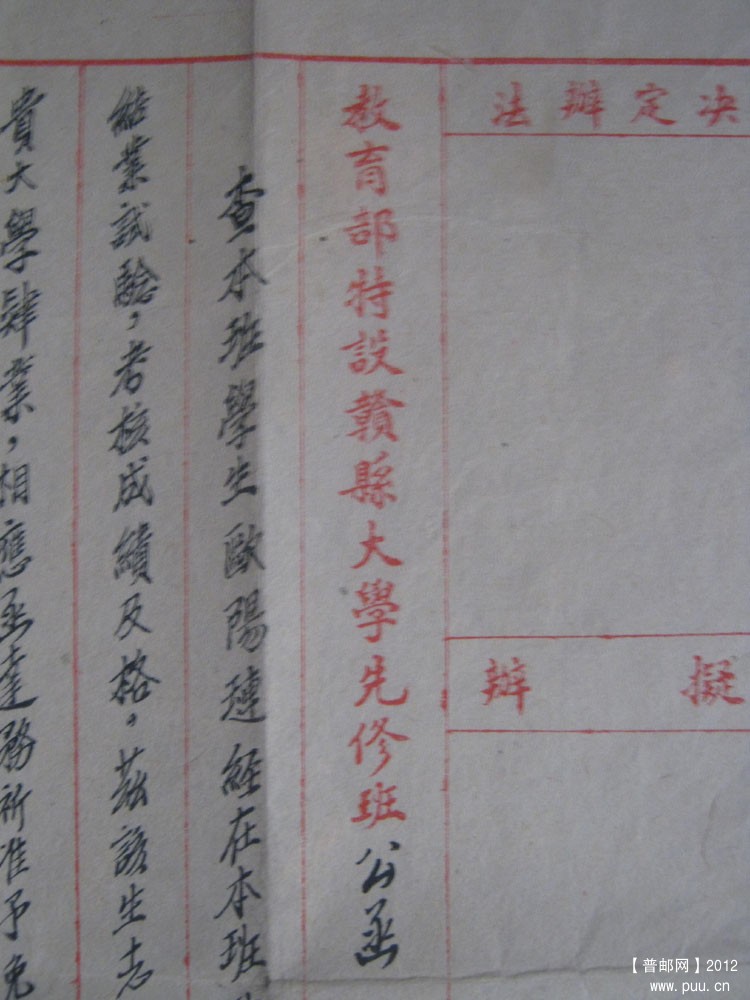 决定辦法
擬辦
教育部特設贛縣大學先修班公函
查本班學生歐陽璉經在本班
結業試驗,考核成績及格。茲該生志
貴大學肄業,相應函達務祈准予免
【普邮网】2012
www.puu.cn